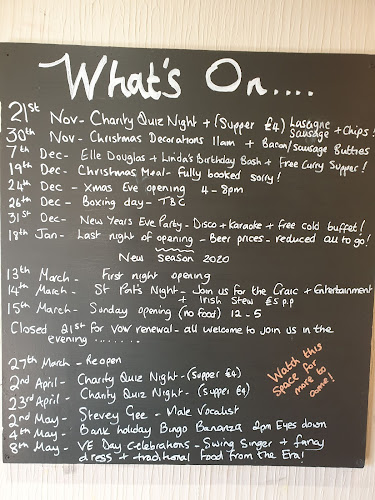 What's On....
21st Nov - Charity Quiz Night + (Supper £4) Lasagne Sausage + Chips!
30th Nov - Christmas Decorations 11am + Bacon/sausage Butties
7th Dec - Elle Douglas + Linda's Birthday Bash + Free Curry Supper!
19th Dec - Christmas Meal - fully booked sorry!
24th Dec - Xmas Eve opening 4 - 8pm
26th Dec - Boxing day - TBC
31st Dec - New Years Eve Party - Disco + Karaoke + free cold buffet!
18th Jan - Last night of opening - Beer prices - reduced all to go!
New Season 2020
13th March - First night opening
14th March - St Pat's Night - Join us for the Craic + Entertainment
+ Irish Stew £5 p.p
15th March - Sunday opening (no food) 12 - 5
Closed 21st for Vow renewal - all welcome to join us in the
evening .......
27th March - Reopen
2nd April - Charity Quiz Night - (Supper £4)
23rd April - Charity Quiz Night - (Supper £4)
2nd May - Stevey Gee - Male Vocalist
4th May - Bank holiday Bingo Bananza 2pm Eyes down
8th May - VE Day Celebrations - Swing Singer + fancy
dress + traditional Food from the Era!
Watch this
space for
more to
come!